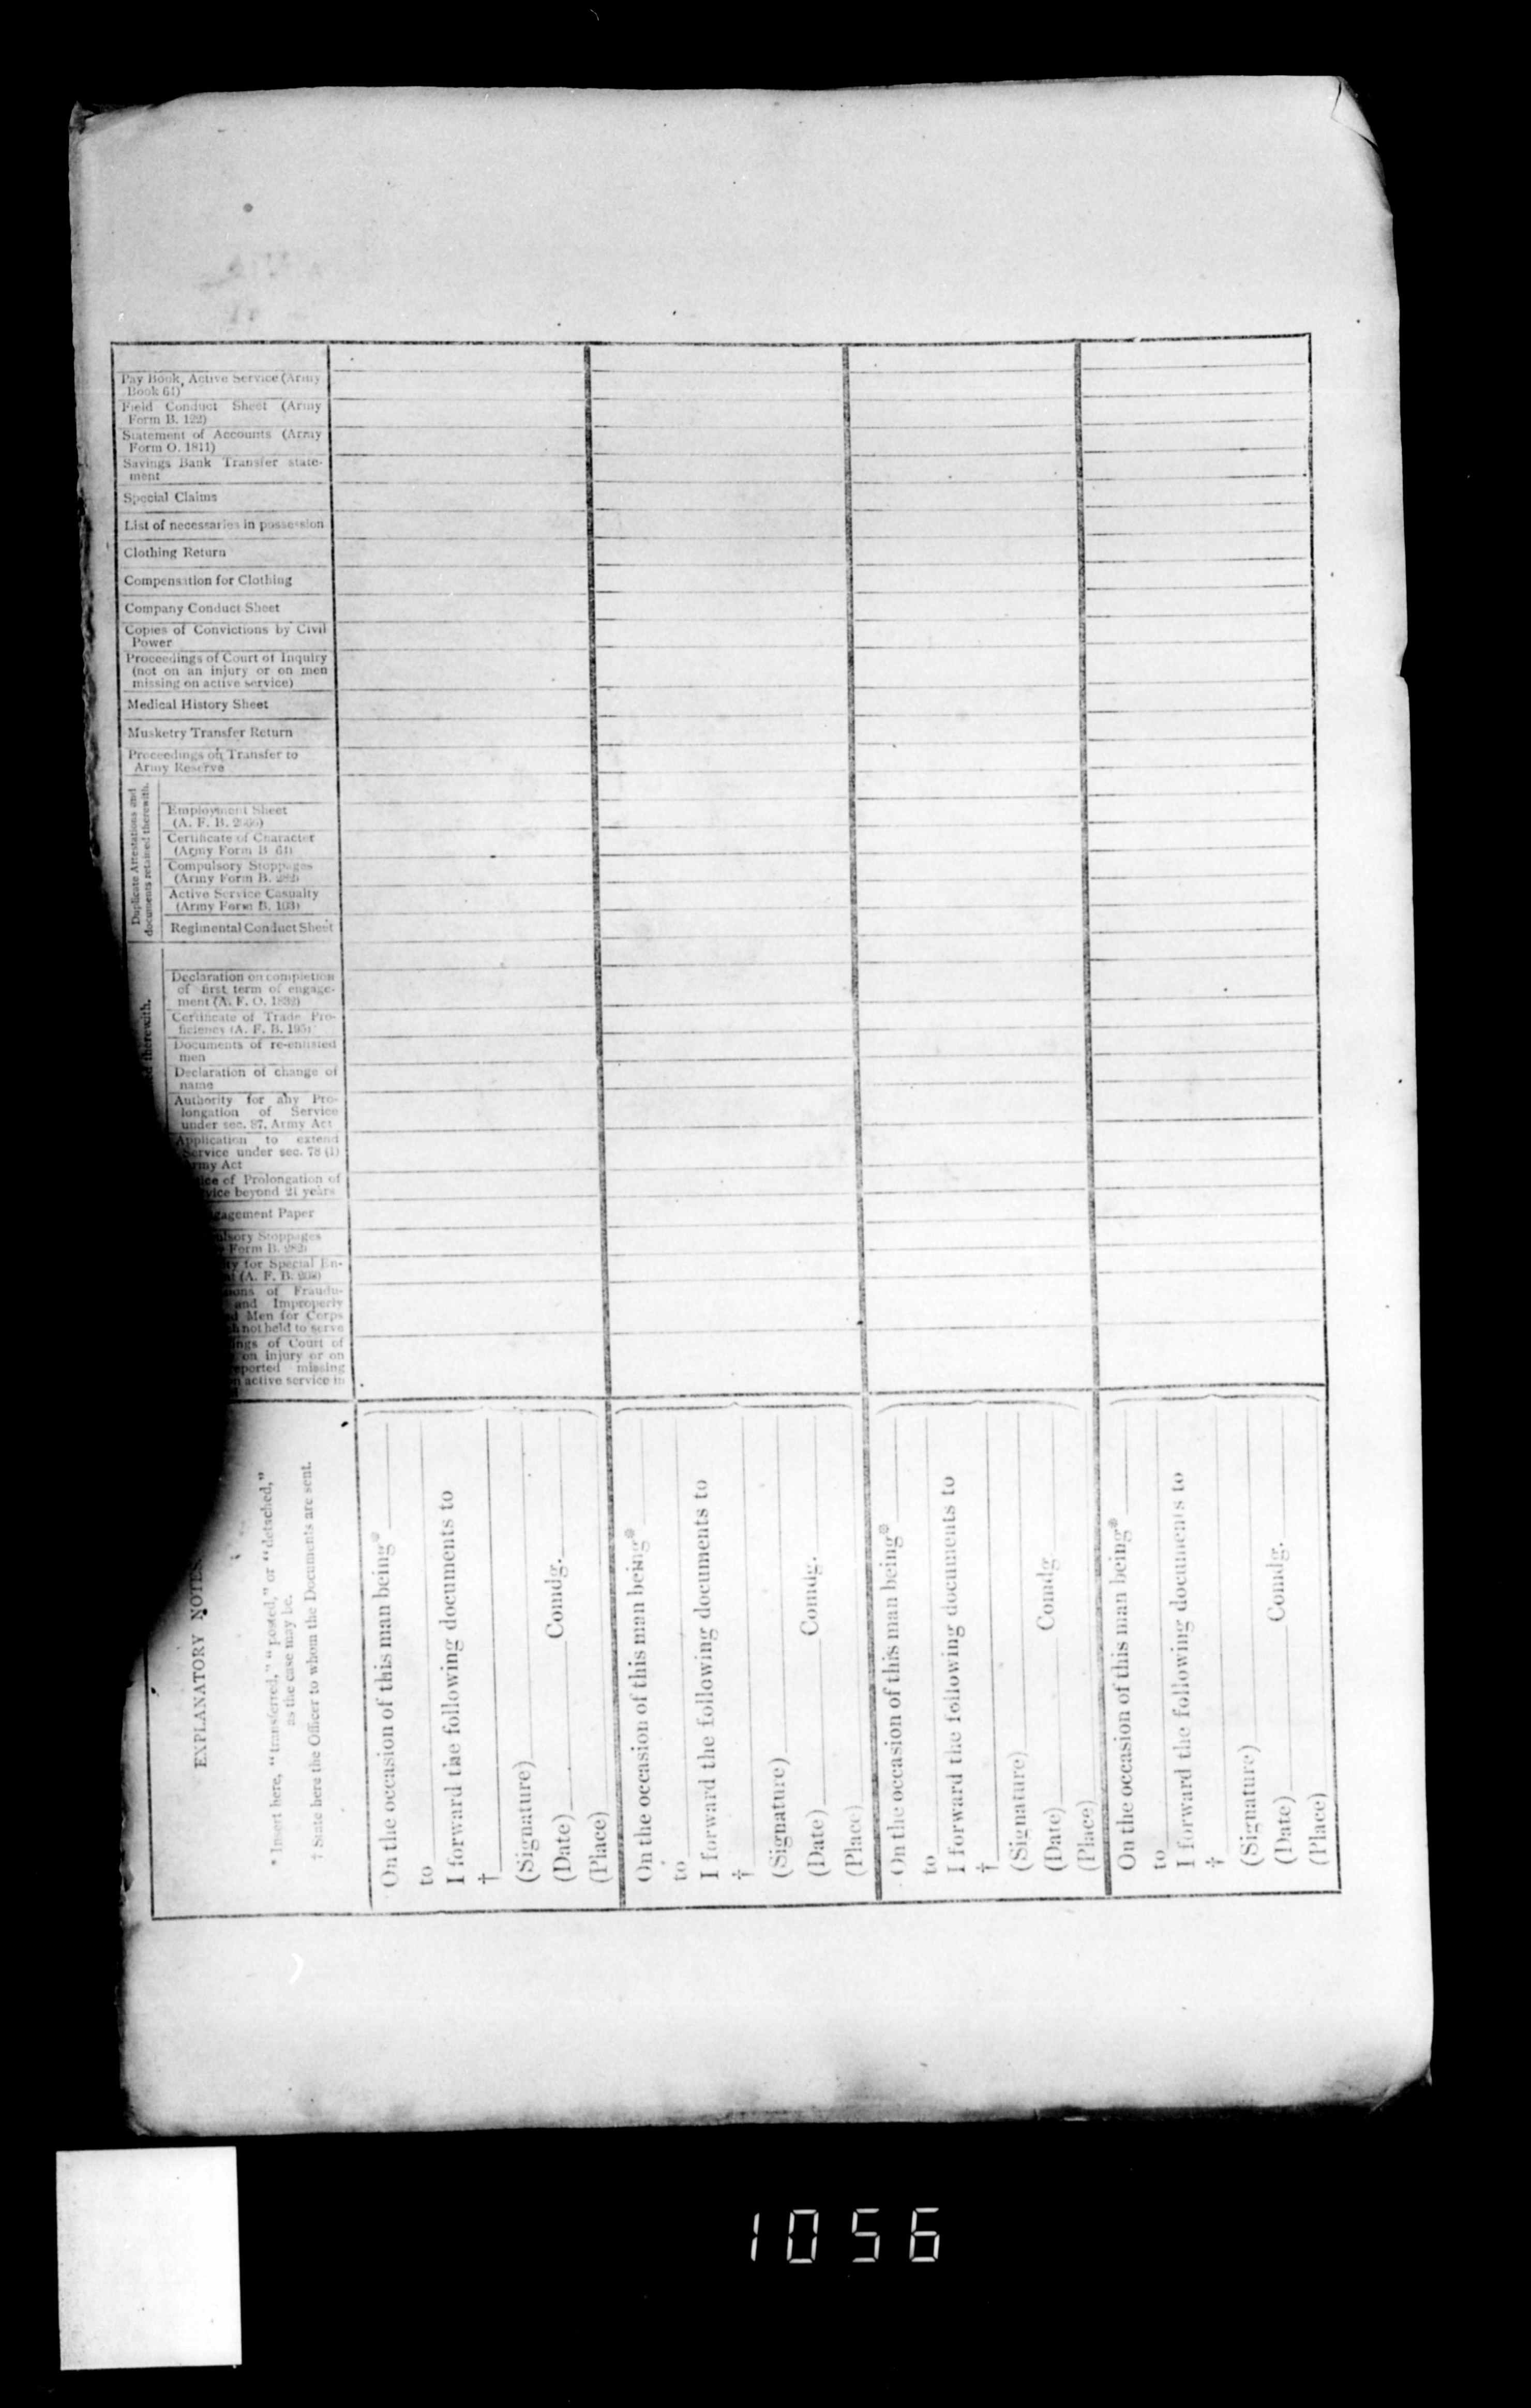 Pay Book, Active Service (Army
Book 64)
Field Conduct Sheet (Army
Form B. 122)
Statement of Accounts (Army
Form O. 1811)
Savings Bank Transfer state-
ment
Special Claims
List of necessaries in possession
Clothing Return
Compensation for Clothing
Company Conduct Sheet
Copies of Convictions by Civil
Power
Proceedings of Court of Inquiry
(not on an injury or on men
missing on active service)
Medical History Sheet
Musketry Transfer Return
Proceedings on Transfer to
Army Reserve
Duplicate Attestations and
documents retained therewith.
Employment Sheet
(A. F. B.
Certificate of Character
(Army Form B
Compulsory Stoppages
(Army Form B.
Active Service Casualty
(Army Form B. 103)
Regimental Conduct Sheet
therewith.
Declaration on completion
of first term of engage-
ment (A. F. O. 1832)
Certificate of Trade Pro-
ficiency (A. F. B. 195)
Documents of re-enlisted
men
Declaration of change of
name
Authority for any Pro-
longation of Service
under sec. 87, Army Act
Application to extend
Service under sec. 78 (1)
Army Act
ice of Prolongation of
vice beyond 21 years
gagement Paper
ulsory Stoppages
Form B.
ty for Special En-
(A. F. B.
sions of Fraudu-
and Improperly
d Men for Corps
h not held to serve
ings of Court of
on injury or on
eported missing
n active service in
EXPLANATORY NOTES
* Insert here, "transferred," "posted," or "detached,"
as the case may be.
† State here the Officer to whom the Documents are sent.
On the occasion of this man being*
to
I forward the following documents to
†
(Signature)
(Date) Comdg.
(Place)
On the occasion of this man being*
to
I forward the following documents to
†
(Signature)
(Date) Comdg.
(Place)
On the occasion of this man being*
to
I forward the following documents to
†
(Signature)
(Date) Comdg
(Place)
On the occasion of this man being*
to
I forward the following documents to
†
(Signature)
(Date) Comdg.
(Place)
1056